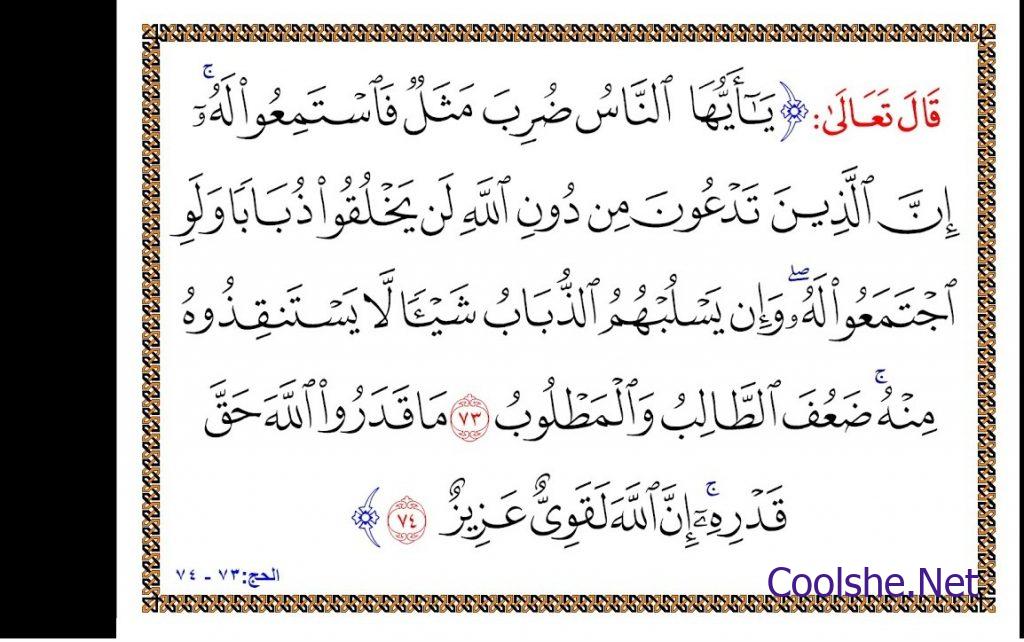 قَالَ تَعَالَىٰ: ﴿ يَـٰٓأَيُّهَا ٱلنَّاسُ ضُرِبَ مَثَلٌ فَٱسْتَمِعُوا۟ لَهُۥٓ ۚ
إِنَّ ٱلَّذِينَ تَدْعُونَ مِن دُونِ ٱللَّهِ لَن يَخْلُقُوا۟ ذُبَابًا وَلَوِ
ٱجْتَمَعُوا۟ لَهُۥ ۖ وَإِن يَسْلُبْهُمُ ٱلذُّبَابُ شَيْـًٔا لَّا يَسْتَنقِذُوهُ
مِنْهُ ۚ ضَعُفَ ٱلطَّالِبُ وَٱلْمَطْلُوبُ ٧٣ مَا قَدَرُوا۟ ٱللَّهَ حَقَّ
قَدْرِهِۦٓ ۚ إِنَّ ٱللَّهَ لَقَوِىٌّ عَزِيزٌ ٧٤ ﴾
الحج: ٧٣ - ٧٤
Coolshe.Net